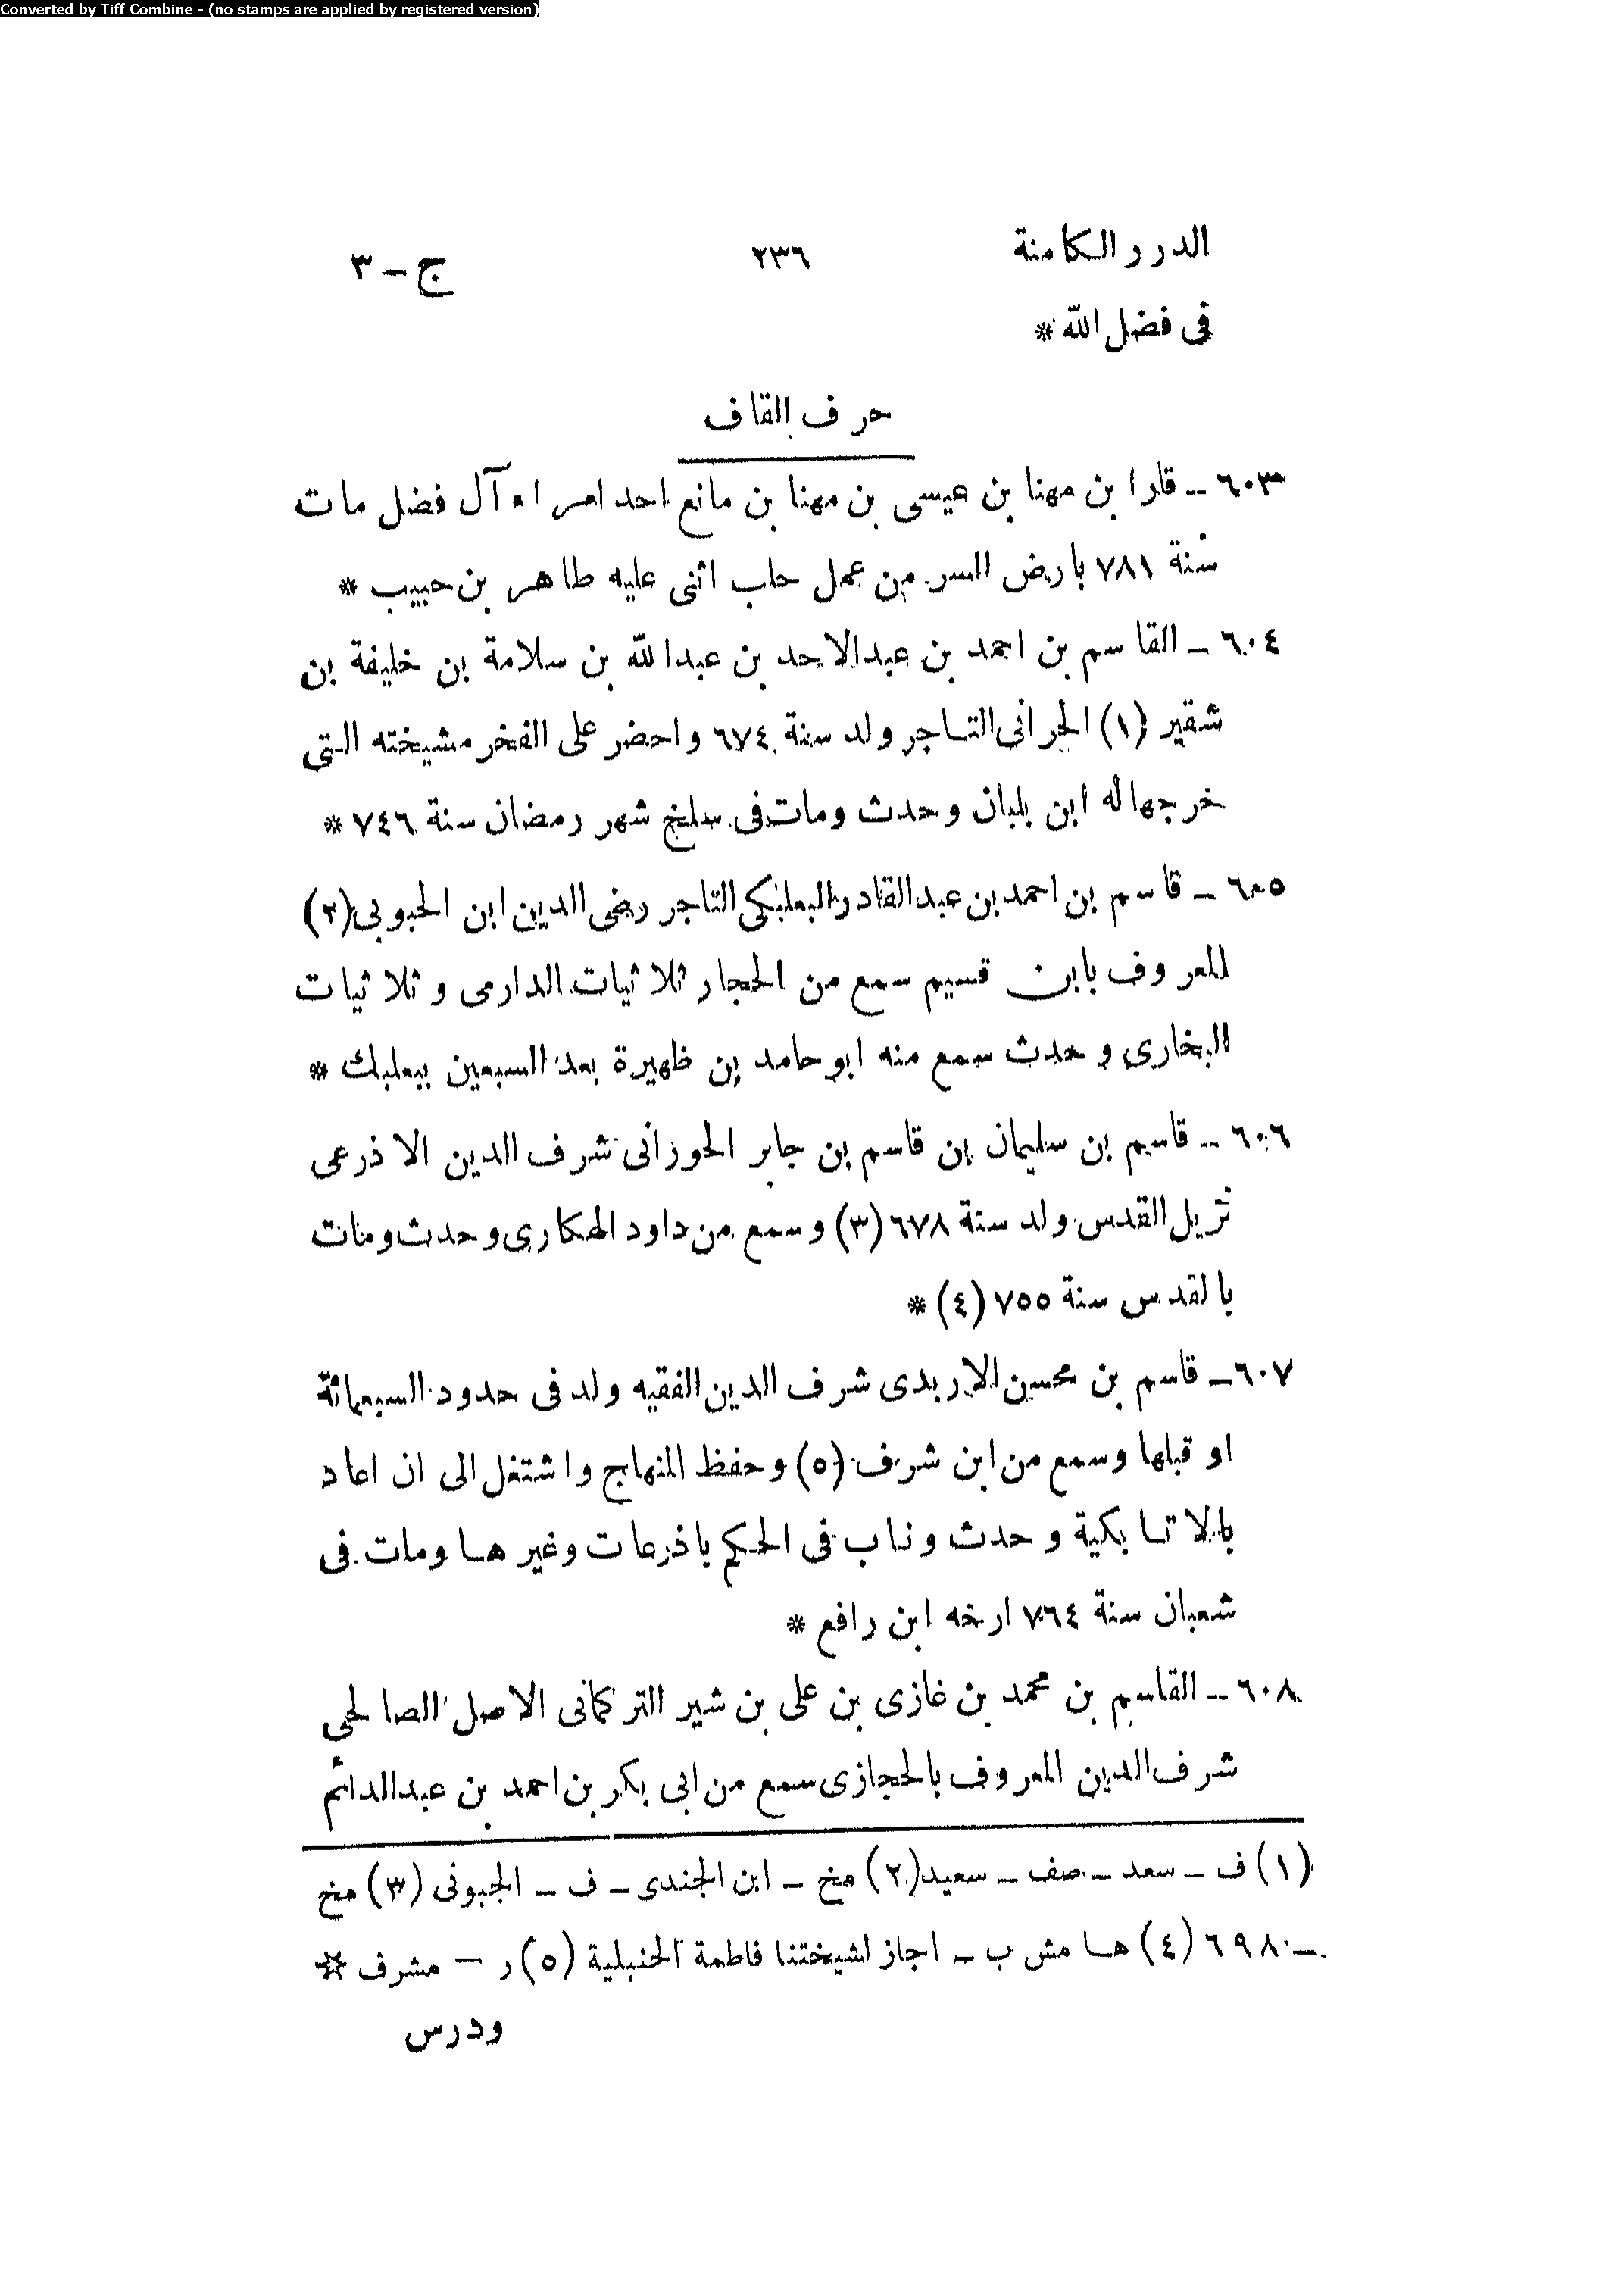 Converted by Tiff Combine - (no stamps are applied by registered version)
الدرر الكامنة ٢٣٦ ج – ٣
فى فضل الله *
حرف القاف
٦٠٣ – قارا بن مهنا بن عيسى بن مهنا بن مانع احد امراء آل فضل مات
سنة ٧٨١ بارض السر من عمل حلب اثنى عليه طاهر بن حبيب *
٦٠٤ – القاسم بن احمد بن عبد الاحد بن عبد الله بن سلامة بن خليفة بن
شقير (١) الحرانى التاجر ولد سنة ٦٧٤ واحضر على الفخر مشيخته التى
خرجها له ابن بلبان وحدث ومات فى سلخ شهر رمضان سنة ٧٤٦ *
٦٠٥ – قاسم بن احمد بن عبد القادر البعلبكى التاجر رضى الدين ابن الحبوبى (٢)
المعروف بابن قسيم سمع من الحجار ثلاثيات الدارمى وثلاثيات
البخارى وحدث سمع منه ابو حامد بن ظهيرة بعد السبعين ببعلبك *
٦٠٦ – قاسم بن سليمان بن قاسم بن جابر الحوزانى شرف الدين الاذرعى
نزيل القدس ولد سنة ٦٧٨ (٣) وسمع من داود الهكارى وحدث ومات
بالقدس سنة ٧٥٥ (٤) *
٦٠٧ – قاسم بن محسن الاربدى شرف الدين الفقيه ولد فى حدود السبعمائة
او قبلها وسمع من ابن شرف (٥) وحفظ المنهاج واشتغل الى ان اعاد
بالاتابكية وحدث وناب فى الحكم باذرعات وغيرها ومات فى
شعبان سنة ٧٦٤ ارخه ابن رافع *
٦٠٨ – القاسم بن محمد بن غازى بن على بن شير التركمانى الاصل الصالحى
شرف الدين المعروف بالحجازى سمع من ابى بكر بن احمد بن عبد الدائم
(١) ف – سعد – صف – سعيد (٢) مخ – ابن الجندى – ف – الجبونى (٣) مخ
– ٦٩٨ (٤) هامش ب – اجاز لشيختنا فاطمة الحنبلية (٥) ر – مشرف *
ودرس